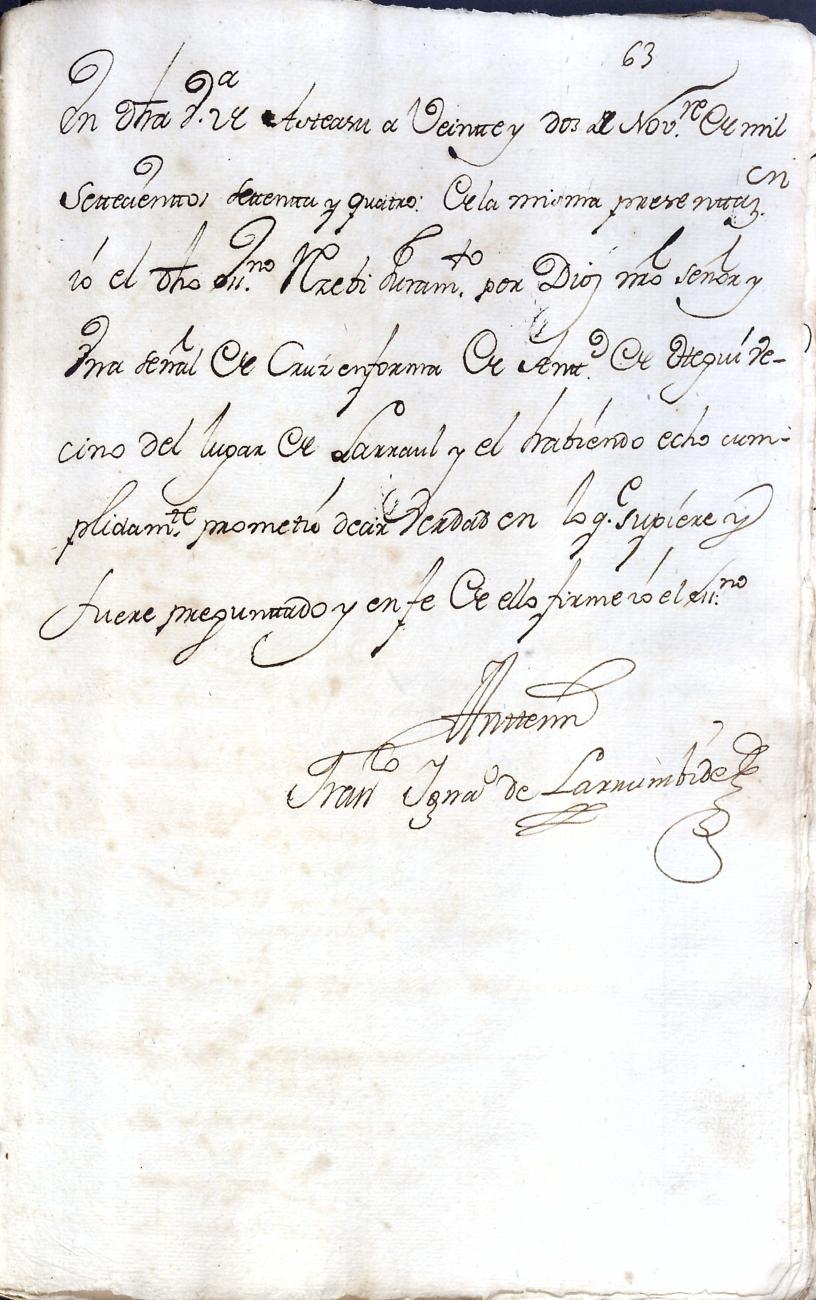 63
En dha V.ª de Asteasu a Veintte y dos de Nov.re de mil
Settecienttos settentta y quatro: de la misma presenttaz.on
ió el dho ess.no Rreciví Juram.to por Dios nro señor y
Una señal de Cruz en forma de Antt.o de Eteguí ve-
cino del lugar de Larraul y el habiéndo echo cum-
plidam.te prometió decir Verdad en lo q.e supiére y
fuere preguntado y en fe de ello firme ió el ess.no
Anttemi
Fran.co Igna.o de Larrumbide